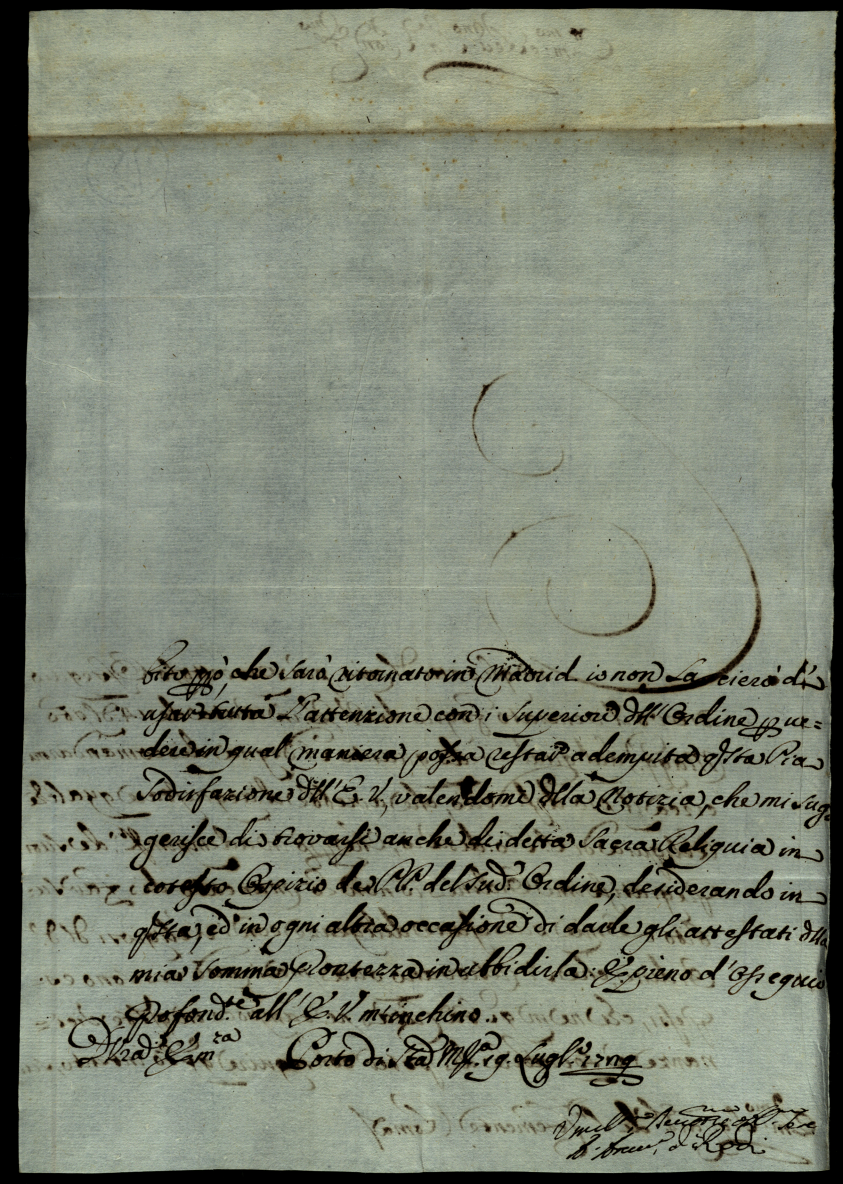 bito però, che sarò ritornato in Madrid io non lascierò di
usar tutta l'attenzione con i Superiori dll'Ordine p ve=
dere in qual maniera possa restar adempita qsta Pia
Sodisfazione dll'E. V., valendomi dlla Notizia, che mi sug
gerisce di trovarsi anche di detta Sacra Reliquia in
cotesto Ospizio de PP. del sud.º Ordine, desiderando in
qsta, ed in ogni altra occasione di darle gli attestati dlla
mia somma prontezza in ubbidirla. E pieno d'ossequio
profond.te all'E. V. m'inchino.
Porto di Sta Ma 19. Lugl.º 1729